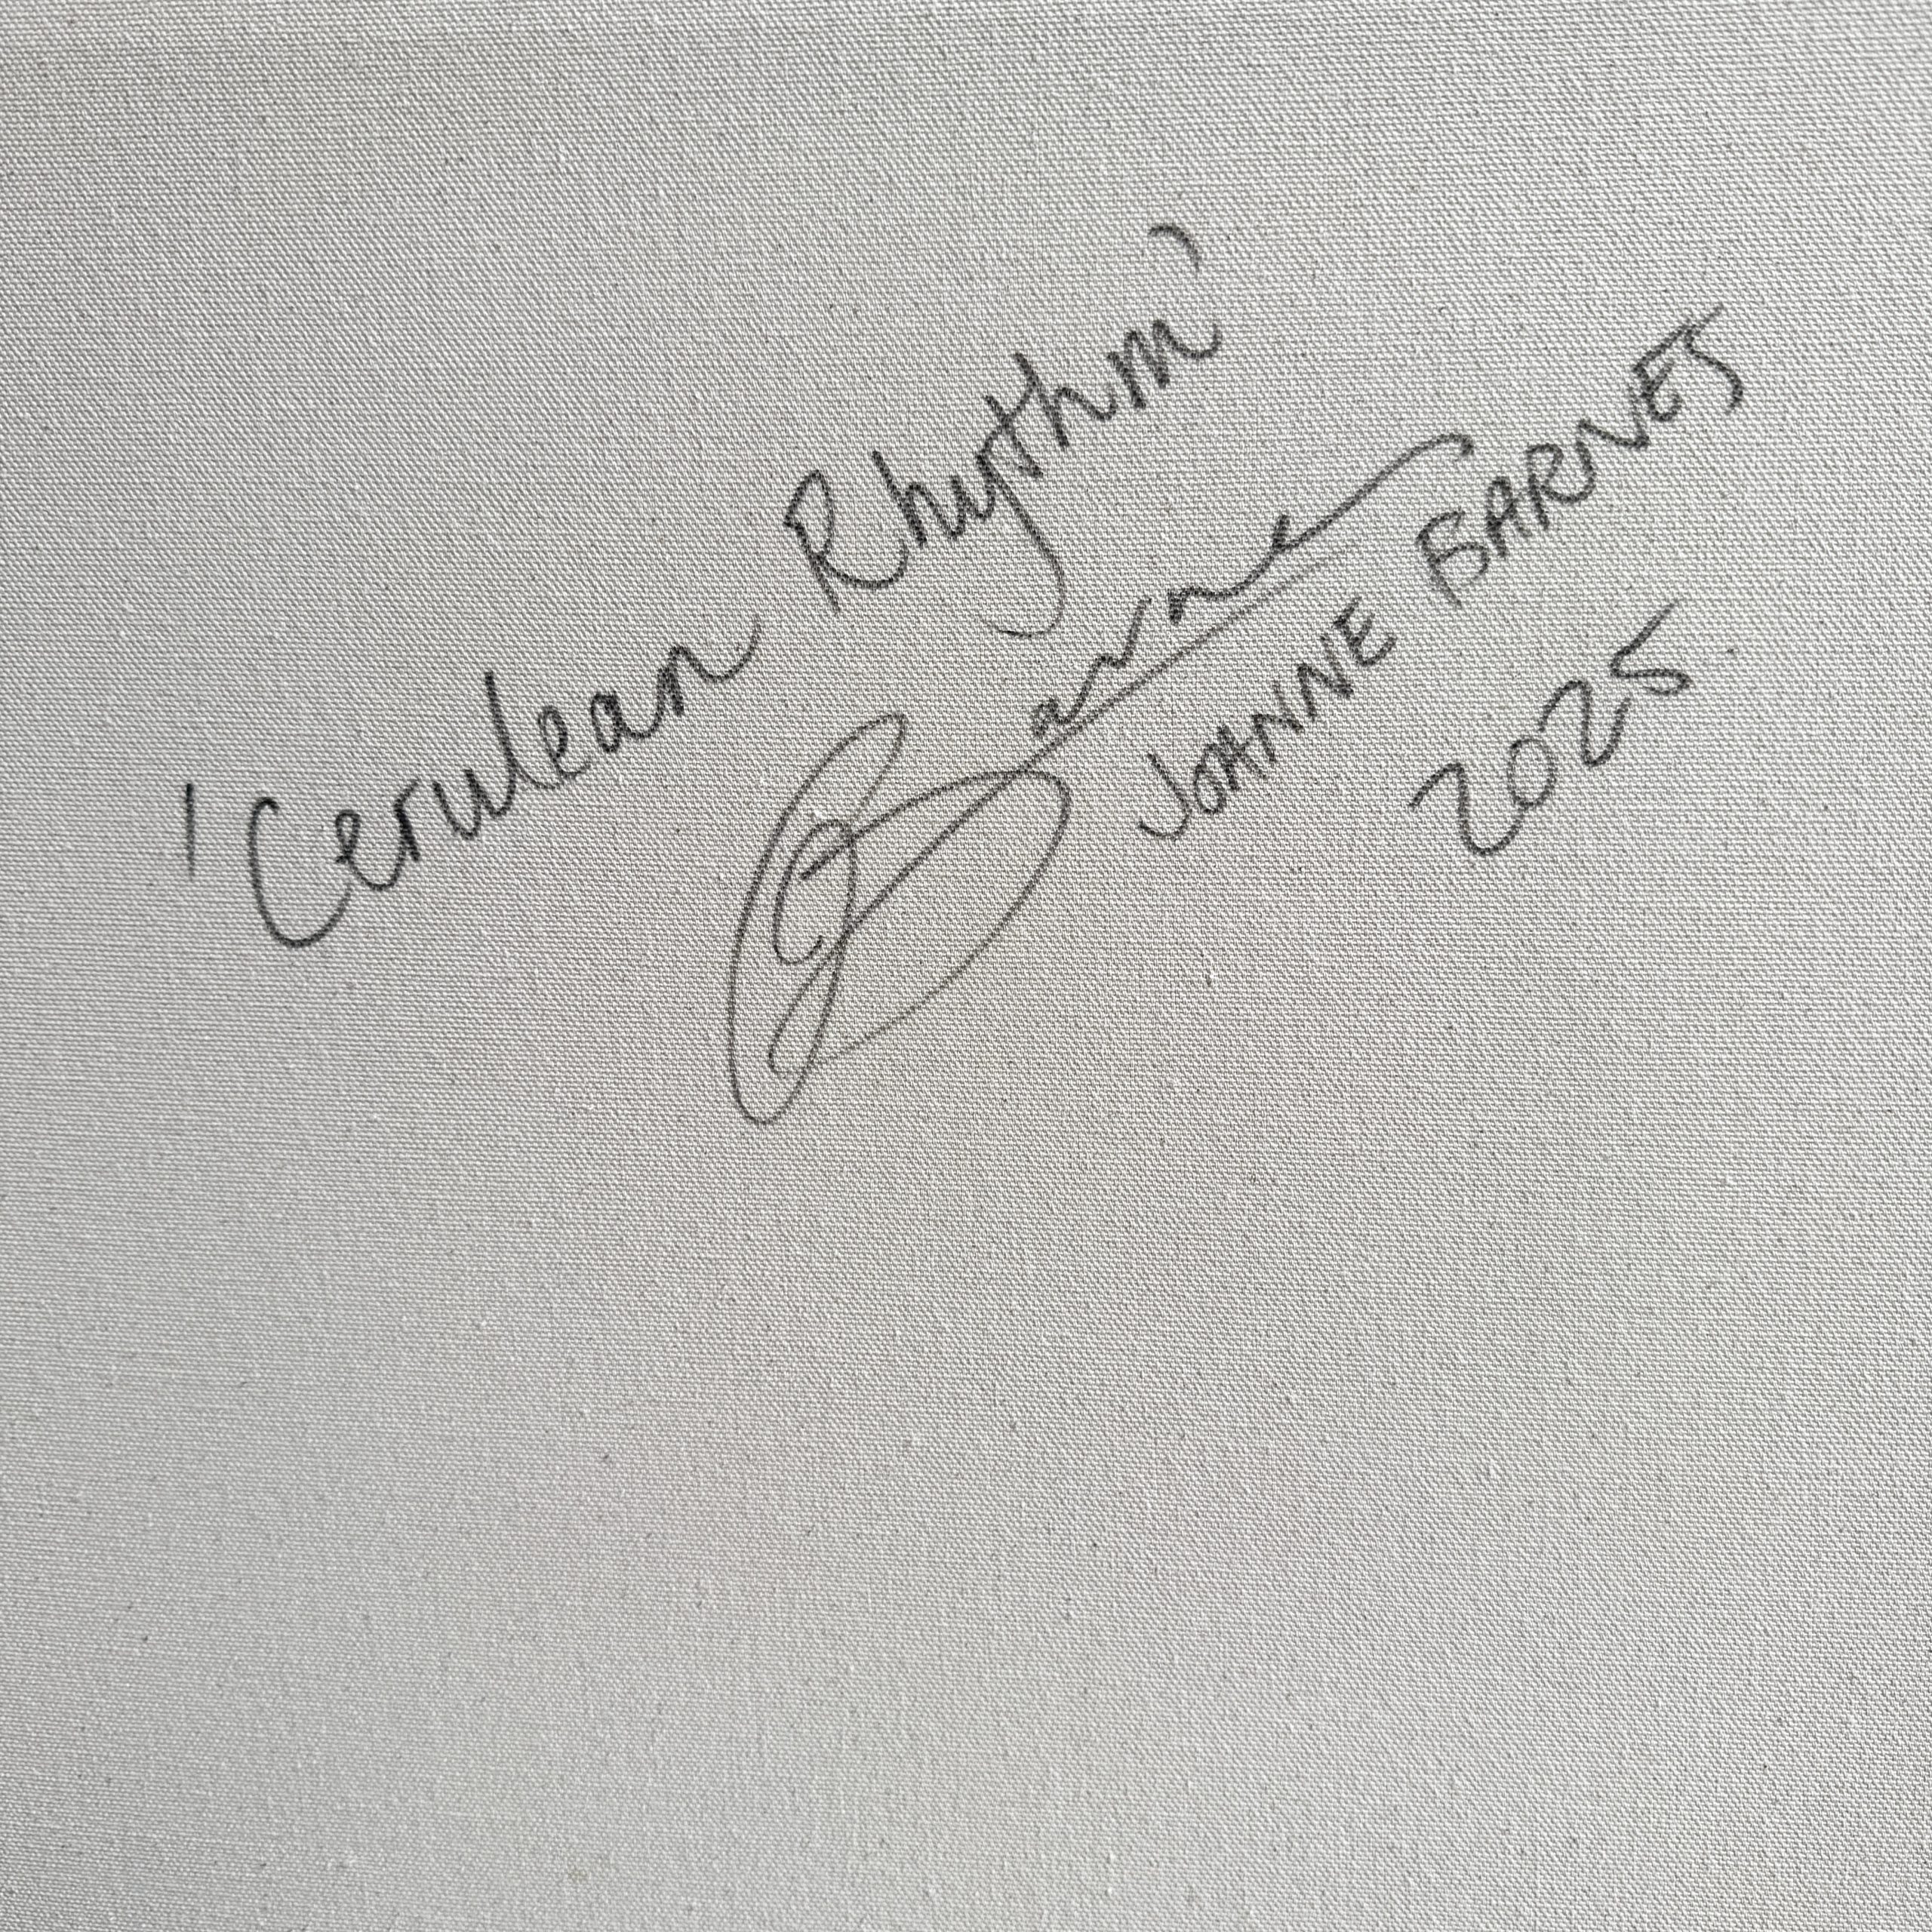 'Cerulean Rhythm'
JOANNE BARNES
2025.